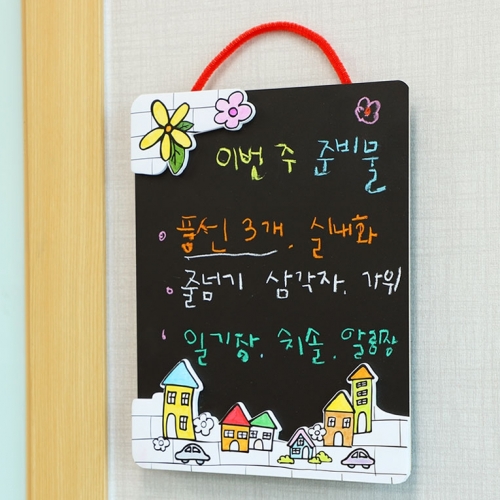 이번 주 준비물
풍선 3개, 실내화
줄넘기 삼각자, 가위
일기장, 치솔, 알림장